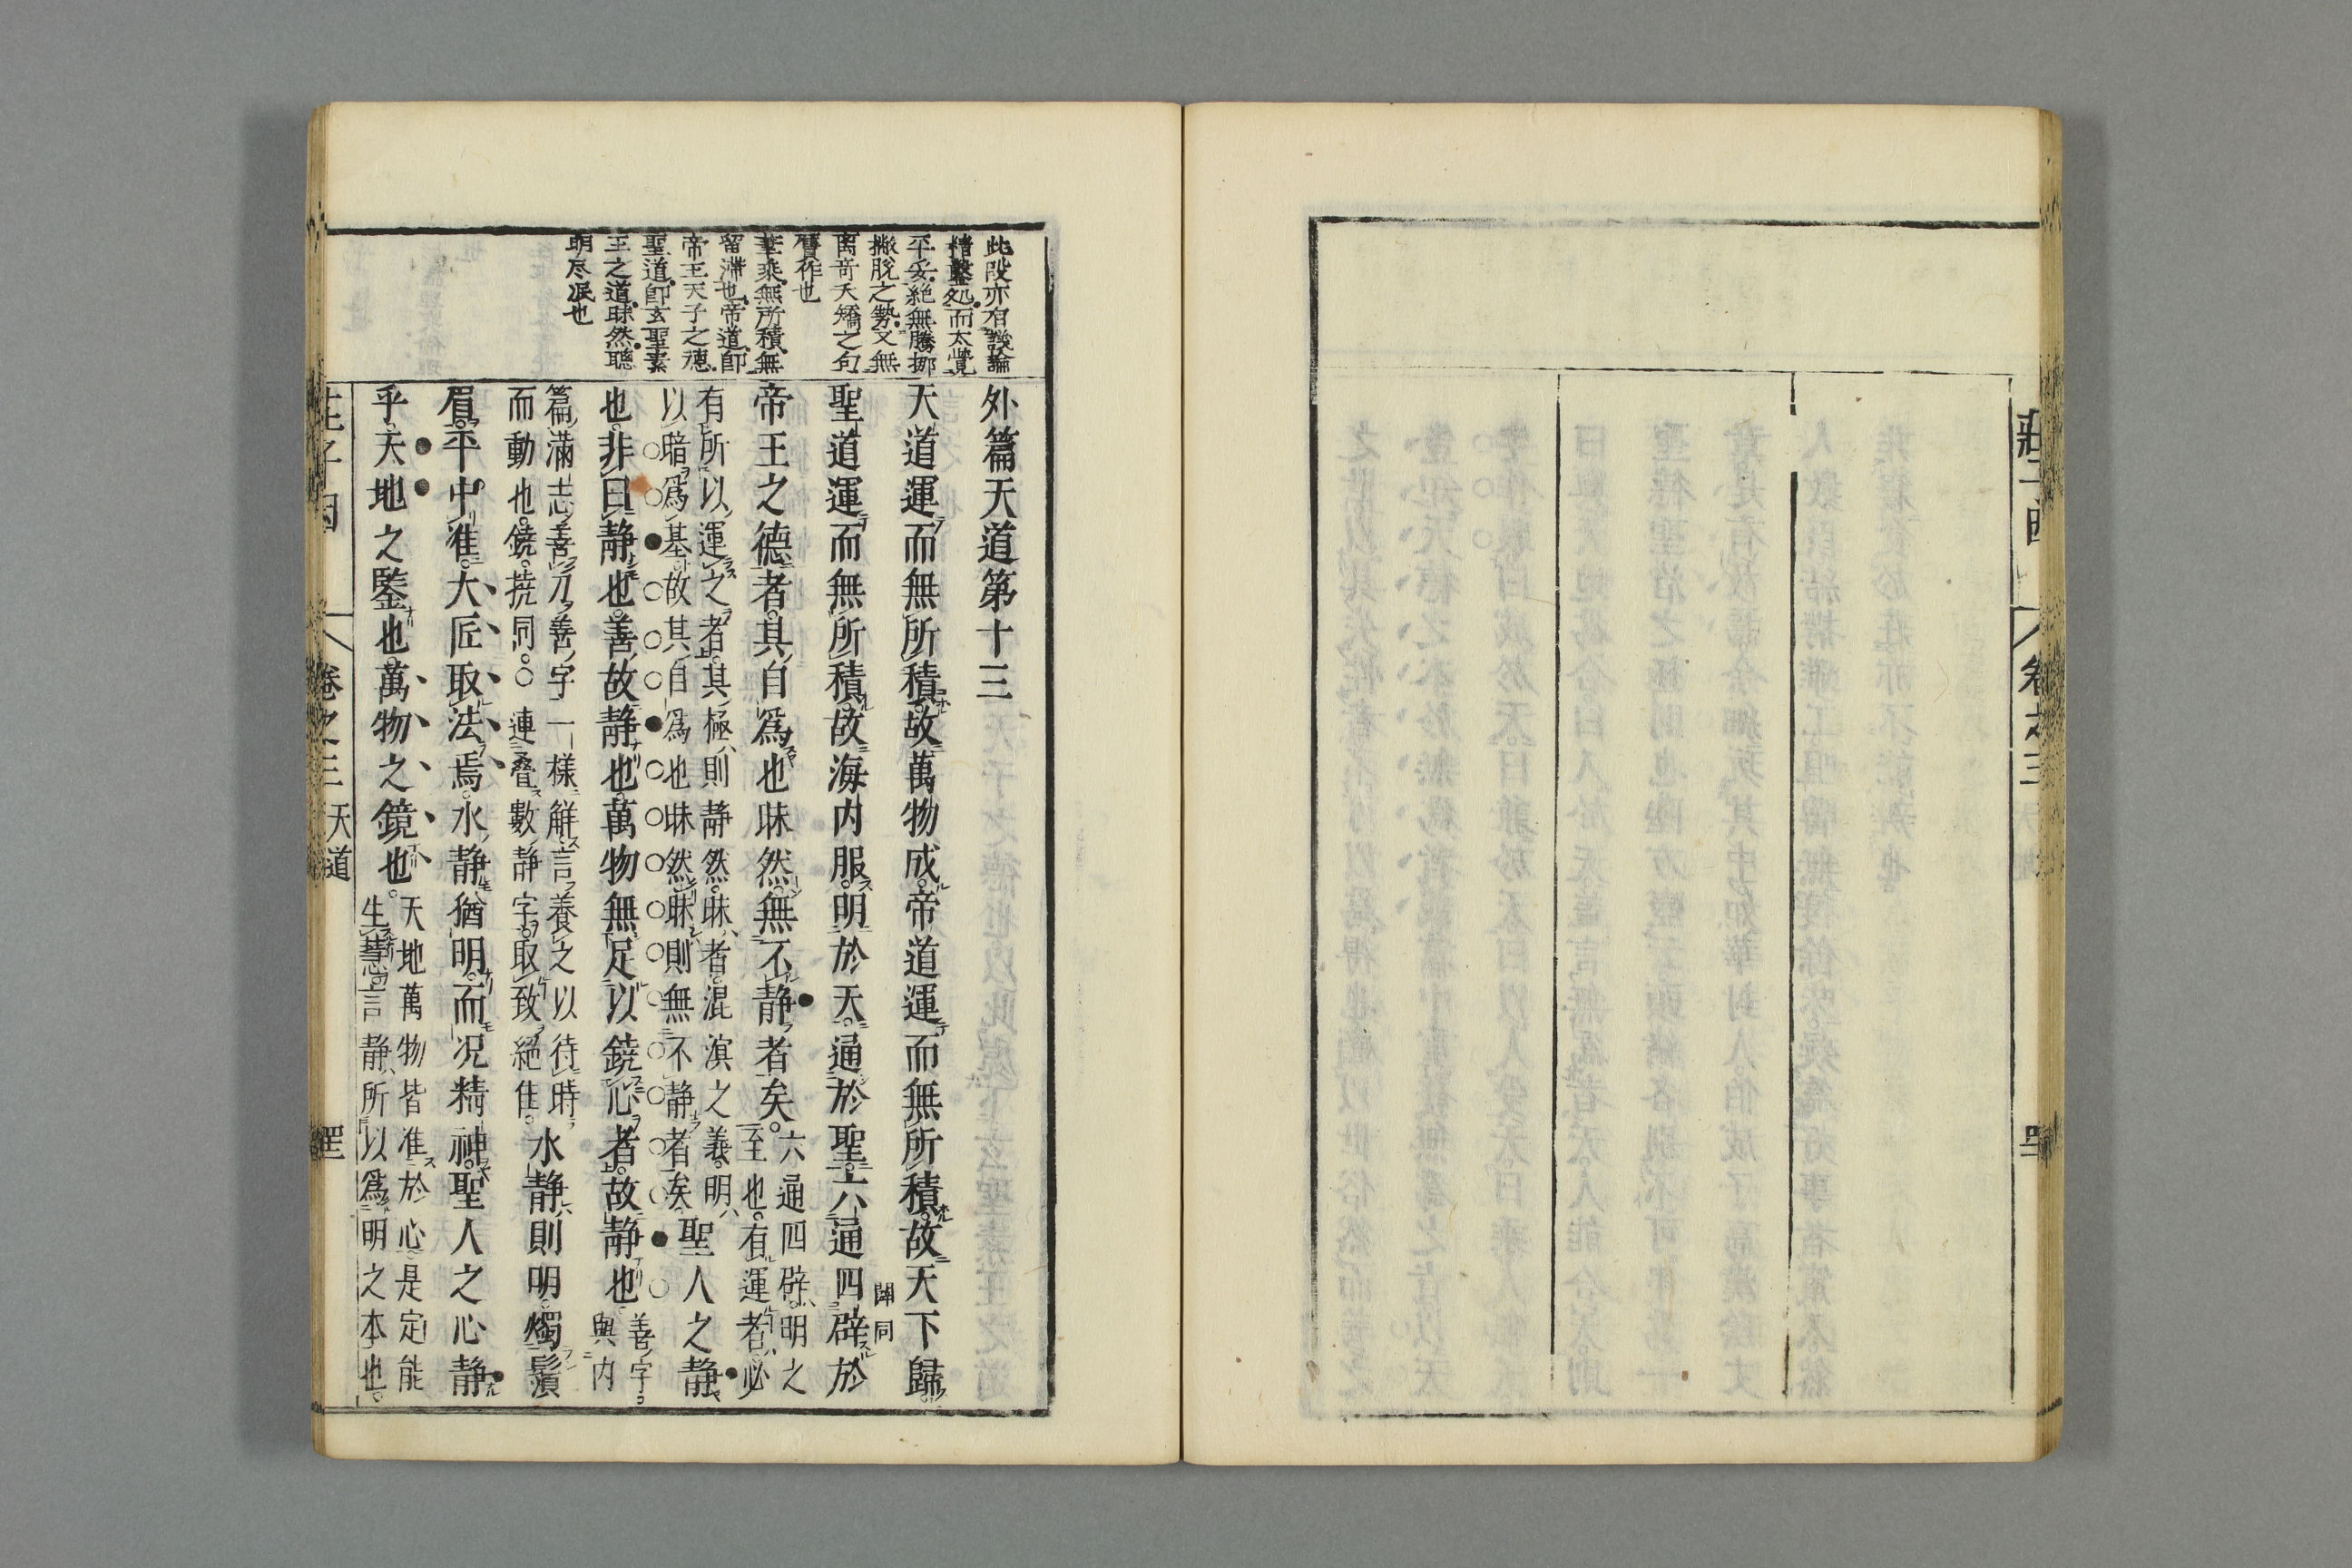 此段亦有議論
精鑿処而太覺
平妥絶無騰挪
撇脫之勢又無
离奇夭矯之句
贋作也
葢乘無所積無
留滯也帝道卽
帝王天子之德
聖道卽玄聖素
王之道昧然聰
明尽泯也
外篇天道第十三
天道運而無所積故萬物成帝道運而無所積故天下歸
聖道運而無所積故海内服明於天通於聖六通四辟於
闢同
帝王之德者其自爲也昧然無不静者矣
六通四辟明之
至也有運者必
有所以運之者其極則静然昧者混溟之義明
以暗爲基故其自爲也昧然昧則無不静者矣
聖人之静
也非曰静也善故静也萬物無足以鐃心者故静也
善字與内
篇滿志善刀善字一樣觧言養之以待時
而動也鐃撓同○連疊數静字取致絕佳
水静則明燭鬚
眉平中准大匠取法焉水静猶明而况精神聖人之心静
乎天地之鑒也萬物之鏡也
天地萬物皆准於心是定能
生慧言静所以爲明之本也
莊子因
卷之三
天道
卷之三